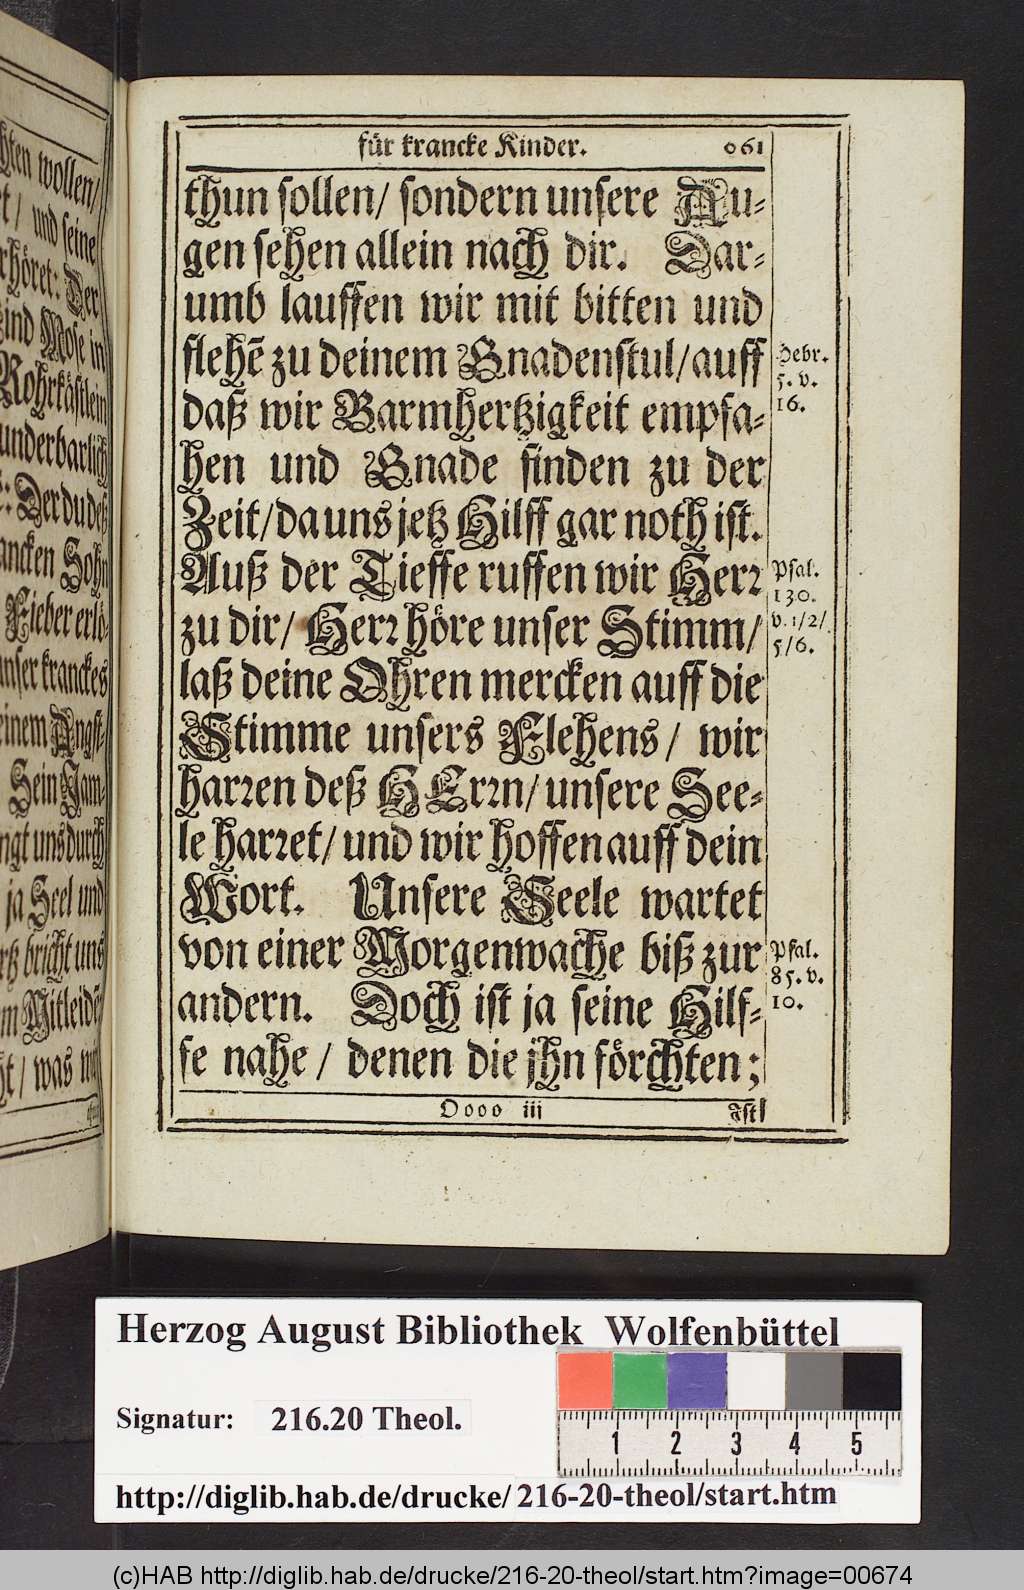 chten wollen/
et/ und seine
rhöret: Der
ind Mose in
Rohrkästlein
underbarlich
: Der du deß
ancken Sohn
Fieber erlö-
unser kranckes
einem Angst-
Sein Jam-
ngt uns durch
ja Seel und
rtz bricht uns
m Mitleidē
ht/ was wir
für krancke Kinder. 061
thun sollen/ sondern unsere Au-
gen sehen allein nach dir. Dar-
umb lauffen wir mit bitten und
flehē zu deinem Gnadenstul/ auff
daß wir Barmhertzigkeit empfa-
hen und Gnade finden zu der
Zeit/ da uns jetz Hilff gar noth ist.
Auß der Tieffe ruffen wir Herr
zu dir/ Herr höre unser Stimm/
laß deine Ohren mercken auff die
Stimme unsers Flehens/ wir
harren deß HErrn/ unsere See-
le harret/ und wir hoffen auff dein
Wort. Unsere Seele wartet
von einer Morgenwache biß zur
andern. Doch ist ja seine Hilf-
fe nahe/ denen die jhn förchten;
Oooo iij Ist
Hebr.
5. v.
16.
Psal.
130.
v. 1/2/
5/6.
Psal.
85. v.
10.
Herzog August Bibliothek Wolfenbüttel
Signatur: 216.20 Theol.
1 2 3 4 5
http://diglib.hab.de/drucke/216-20-theol/start.htm
(c)HAB http://diglib.hab.de/drucke/216-20-theol/start.htm?image=00674